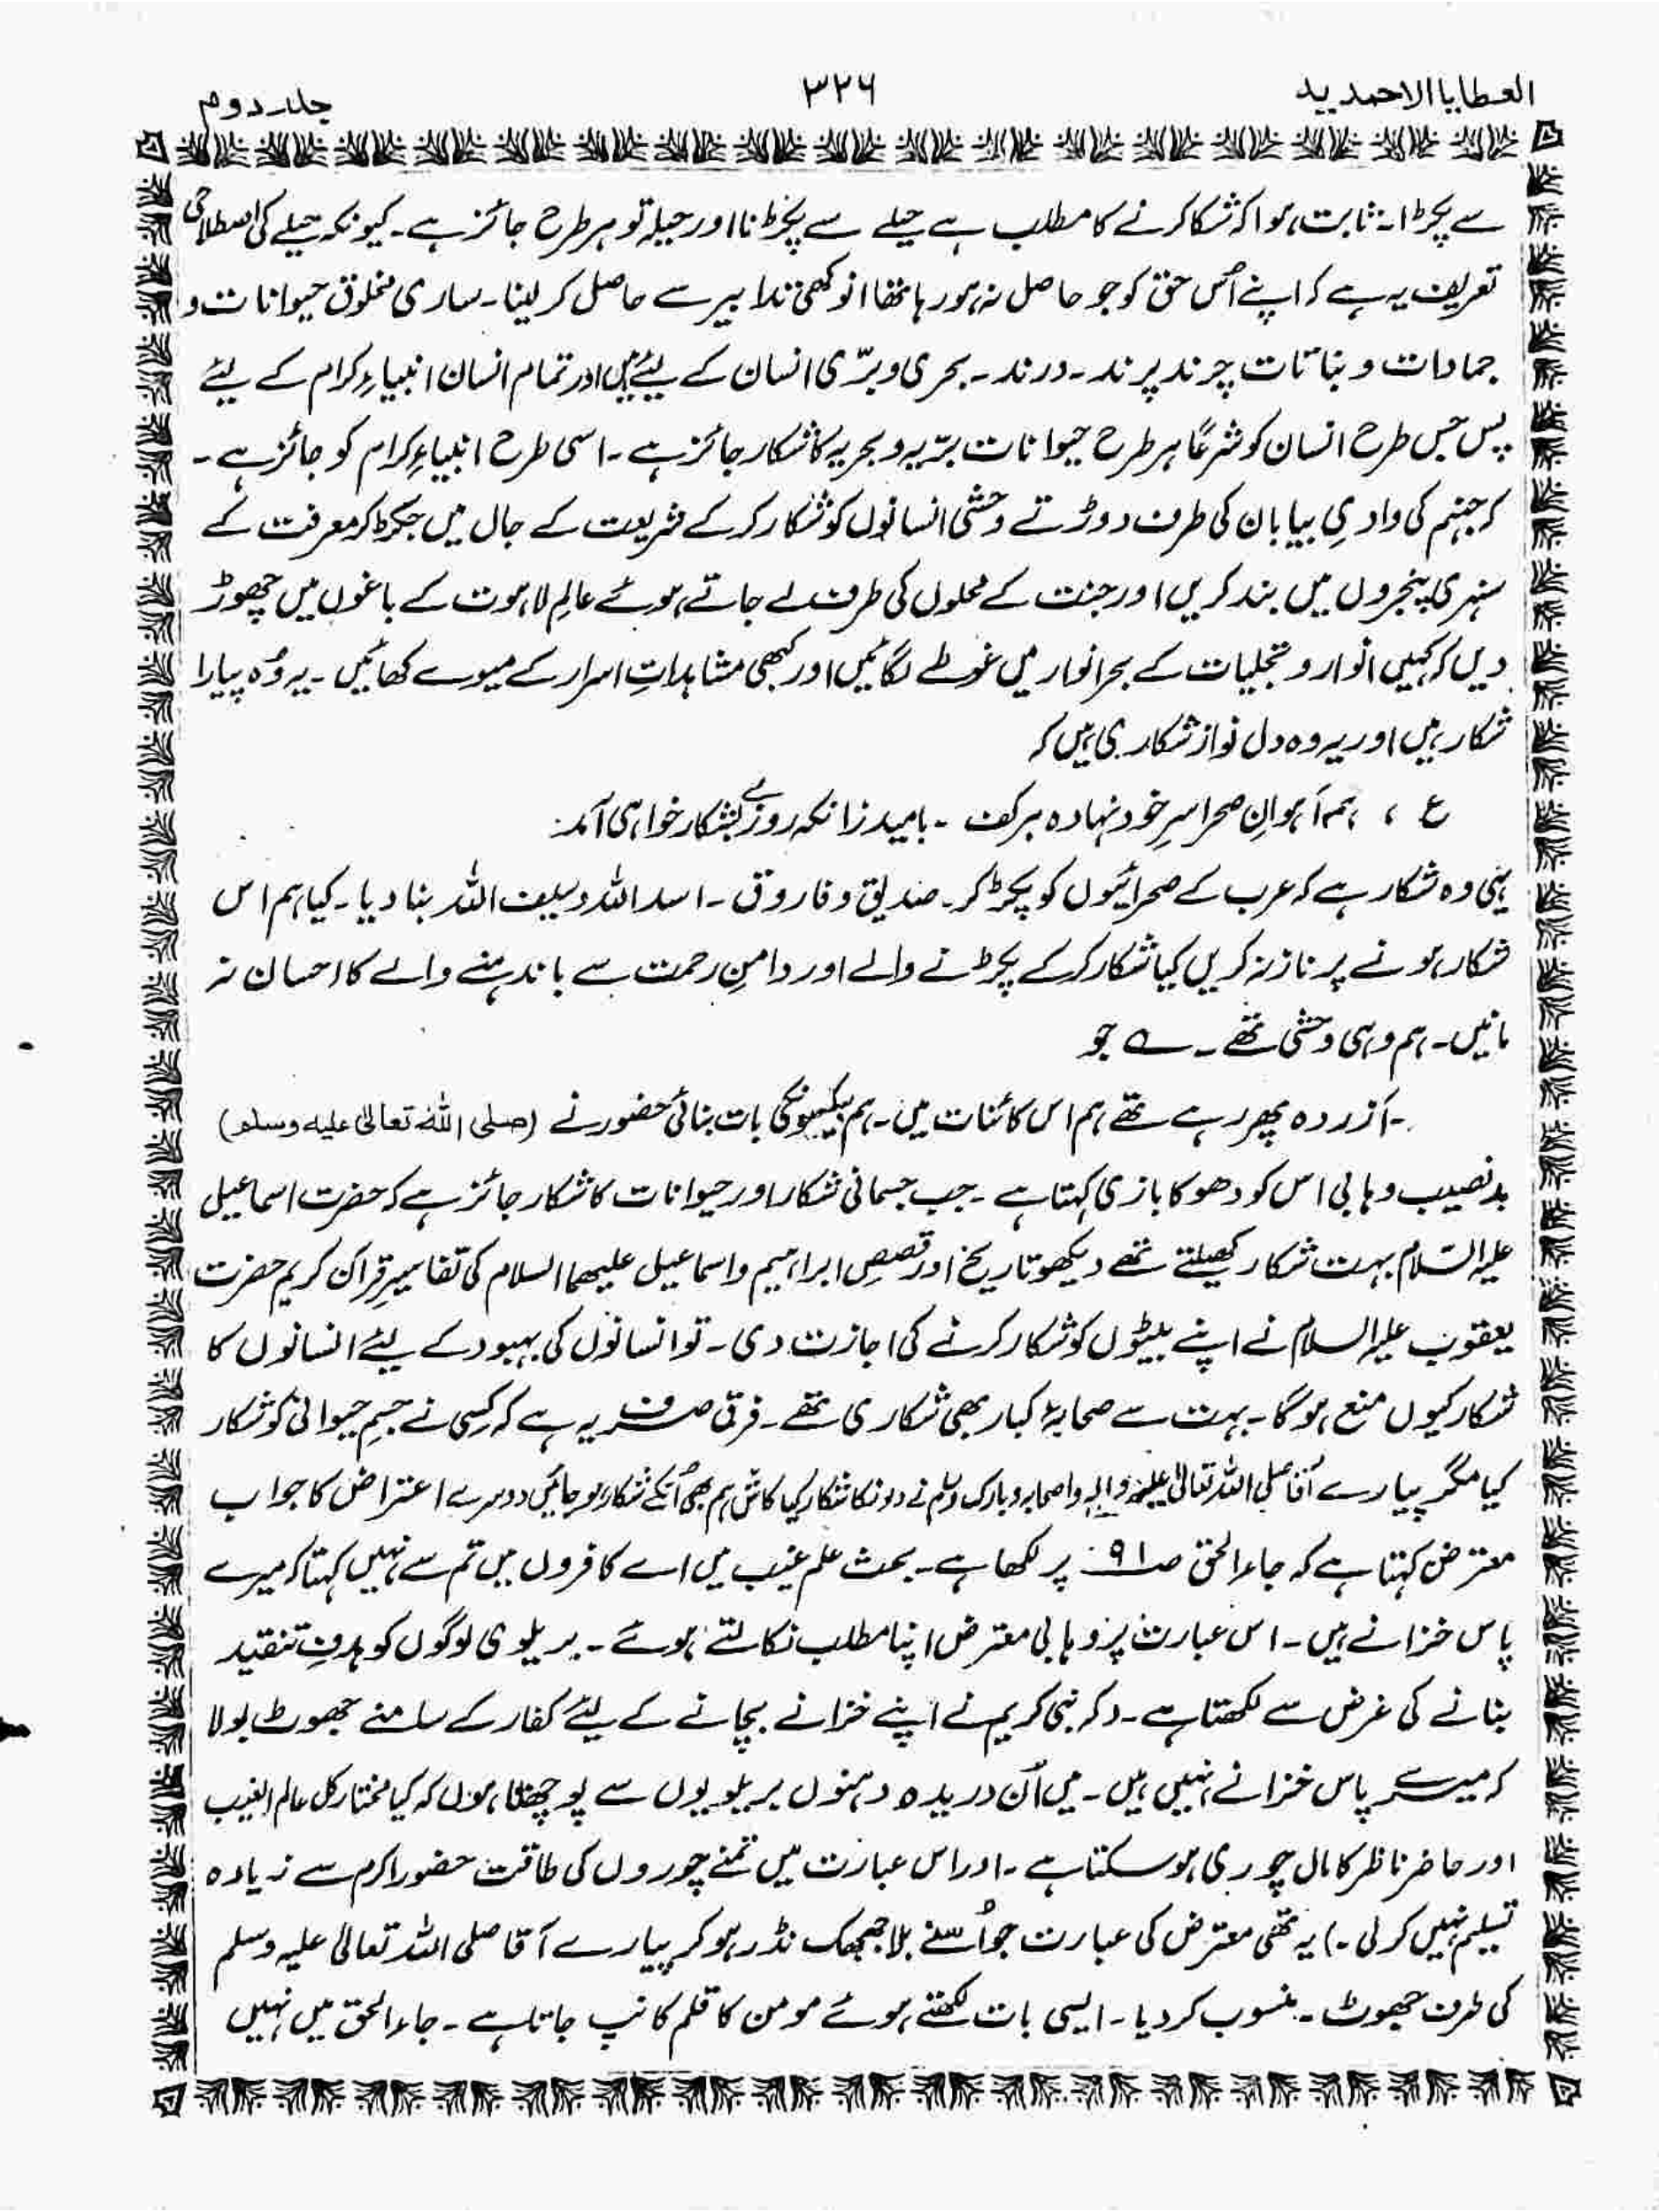 العطایا الاحمدیہ
۳۲۶
جلد دوم
سے پکڑا۔ ثابت ہوا کہ شکار کرنے کا مطلب ہے حیلے سے پکڑنا اور حیلہ تو ہر طرح جائز ہے۔ کیونکہ حیلے کی اصطلاحی
تعریف یہ ہے کہ اپنے اُس حق کو جو حاصل نہ ہو رہا تھا انوکھی تدابیر سے حاصل کر لینا۔ ساری مخلوق حیوانات و
جمادات و نباتات چرند پرند۔ درند۔ بحری و برّی انسان کے لیئے ہیں اور تمام انسان انبیاءِ کرام کے لیئے
پس جس طرح انسان کو شرعًا ہر طرح حیوانات برّیہ و بحریہ کا شکار جائز ہے۔ اسی طرح انبیاءِ کرام کو جائز ہے۔
کہ جہنم کی وادیِ بیابان کی طرف دوڑتے وحشی انسانوں کو شکار کر کے شریعت کے جال میں جکڑ کر معرفت کے
سنہری پنجروں میں بند کریں اور جنت کے محلوں کی طرف لے جاتے ہوئے عالمِ لاہوت کے باغوں میں چھوڑ
دیں کہ کہیں انوار و تجلیات کے بحر انوار میں غوطے لگائیں اور کبھی مشاہداتِ اسرار کے میوے کھائیں۔ یہ وُہ پیارا
شکار ہیں اور یہ وہ دل نواز شکاری ہیں کہ
ع ، ہمہ آہوانِ صحرا سرِ خود نہادہ برکف ۔ بامید زانکہ روزے بشکار خواہی آمد
یہی وہ شکار ہے کہ عرب کے صحرائیوں کو پکڑ کر۔ صدیق و فاروق۔ اسد اللہ و سیف اللہ بنا دیا۔ کیا ہم اس
شکار ہونے پر ناز نہ کریں کیا شکار کر کے پکڑنے والے اور دامنِ رحمت سے باندہنے والے کا احسان نہ
مانیں۔ ہم وہی وحشی تھے۔ ؎ جو
۔ آزردہ پھر رہے تھے ہم اس کائنات میں۔ ہم بیکسیونکی بات بنائی حضور نے (صلی اللہ تعالیٰ علیہ وسلم)
بدنصیب وہابی اس کو دھوکا بازی کہتا ہے۔ جب جسمانی شکار اور حیوانات کا شکار جائز ہے کہ حضرت اسماعیل
علیہ السّلام بہت شکار کھیلتے تھے دیکھو تاریخ اور قصصِ ابراہیم و اسماعیل علیھما السلام کی تفاسیرِ قرآن کریم حضرت
یعقوب علیہ السلام نے اپنے بیٹوں کو شکار کرنے کی اجازت دی۔ تو انسانوں کی بہبود کے لیئے انسانوں کا
شکار کیوں منع ہو گا۔ بہت سے صحابۂ کبار بھی شکاری تھے۔ فرق صرف یہ ہے کہ کِسی نے جسمِ حیوانی کو شکار
کیا مگر پیارے آقا صلی اللہ تعالیٰ علیہ وآلہٖ واصحابہ وبارک وسلم نے دونکا شکار کیا کاش ہم بھی اُنکے شکار ہو جائیں دوسرے اعتراض کا جواب
معترض کہتا ہے کہ جاء الحق صـ۹۱ پر لکھا ہے۔ بحث علم غیب میں اے کافروں میں تم سے نہیں کہتا کہ میرے
پاس خزانے ہیں۔ اس عبارت پر وہابی معترض اپنا مطلب نکالتے ہوئے۔ بریلوی لوگوں کو ہدفِ تنقید
بنانے کی غرض سے لکھتا ہے۔ (کہ نبی کریم نے اپنے خزانے بچانے کے لیئے کفار کے سامنے جھوٹ بولا
کہ میرے پاس خزانے نہیں ہیں۔ میں اُن دریدہ دہنوں بریلویوں سے پوچھتا ہوں کہ کیا مختار کل عالم الغیب
اور حاضر ناظر کا مال چوری ہو سکتا ہے۔ اور اس عبارت میں تمنے چوروں کی طاقت حضور اکرم سے زیادہ
تسلیم نہیں کر لی۔) یہ تھی معترض کی عبارت جو اُسنے بلا جھجھک نڈر ہو کر پیارے آقا صلی اللہ تعالیٰ علیہ وسلم
کی طرف جھوٹ۔ منسوب کر دیا۔ ایسی بات لکھتے ہوئے مومن کا قلم کانپ جاتا ہے۔ جاء الحق میں نہیں